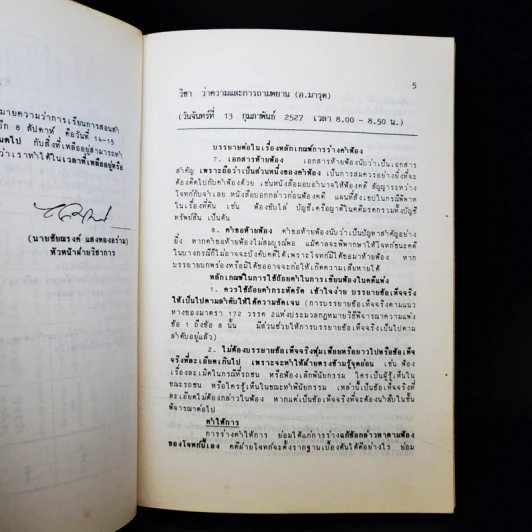 มายความว่าการเรียนการสอนสำ
อีก 8 สัปดาห์ คือวันที่ 14-15
กับสิ่งที่เหลืออยู่สามารถทำ
ว่าเราทำได้ในเวลาที่เหลืออยู่หรือ
(นายชัยณรงค์ แสงทองอร่าม)
หัวหน้าฝ่ายวิชาการ
5
วิชา ว่าความและการถามพยาน (อ.มารุต)
(วันจันทร์ที่ 13 กุมภาพันธ์ 2527 เวลา 8.00 - 8.50 น.)
บรรยายต่อในเรื่องหลักเกณฑ์การร่างคำฟ้อง
7. เอกสารท้ายฟ้อง เอกสารท้ายฟ้องนับว่าเป็นเอกสาร
สำคัญ เพราะถือว่าเป็นส่วนหนึ่งของคำฟ้อง เป็นการสมควรอย่างยิ่งที่จะ
ต้องคัดไปกับคำฟ้องด้วย เช่นหนังสือมอบอำนาจให้ฟ้องคดี สัญญาระหว่าง
โจทก์กับจำเลย หนังสือบอกกล่าวก่อนฟ้องคดี แผนที่สังเขปในกรณีพิพาท
ในเรื่องที่ดิน เช่น ฟ้องขับไล่ บัญชีเครือญาติในคดีมรดกรวมทั้งบัญชี
ทรัพย์สิน เป็นต้น
8. คำขอท้ายฟ้อง คำขอท้ายฟ้องนับว่าเป็นปัญหาสำคัญอย่าง
ยิ่ง หากคำขอท้ายฟ้องไม่สมบูรณ์พอ แม้ศาลจะพิพากษาให้โจทก์ชนะคดี
ในบางกรณีก็ไม่อาจจะบังคับคดีได้เพราะโจทก์มิได้ขอมาท้ายฟ้อง หาก
บรรยายบกพร่องหรือมิได้ขออาจจะก่อให้เกิดความเสียหายได้
หลักเกณฑ์ในการใช้ถ้อยคำในการเขียนฟ้องในคดีแพ่ง
1. ควรใช้ถ้อยคำกระทัดรัด เข้าใจง่าย บรรยายข้อเท็จจริง
ให้เป็นไปตามลำดับให้ได้ความชัดเจน (การบรรยายข้อเท็จจริงตามแนว
ทางของมาตรา 172 วรรค 2แห่งประมวลกฎหมายวิธีพิจารณาความแพ่ง
ข้อ 1 ถึงข้อ 8 นั้น มีส่วนช่วยให้การบรรยายข้อเท็จจริงเป็นไปตาม
ลำดับอยู่แล้ว)
2. ไม่ต้องบรรยายข้อเท็จจริงฟุ่มเฟือยหรือยาวไปหรือข้อเท็จ
จริงที่ละเอียดเกินไป เพราะจะทำให้ฝ่ายตรงข้ามรู้จุดอ่อน เช่น ฟ้อง
เรื่องละเมิดในกรณีที่รถชน หรือฟ้องเลิกพินัยกรรม ใครเป็นผู้รู้เห็นใน
ขณะรถชน หรือใครรู้เห็นในขณะทำพินัยกรรม เหล่านี้เป็นข้อเท็จจริงที่
ละเอียดไม่ต้องกล่าวในฟ้อง หากแต่เป็นข้อเท็จจริงที่จะต้องนำสืบในชั้น
พิจารณาต่อไป
คำให้การ
การร่างคำให้การ ย่อมได้แก่การร่างแก้ข้อกล่าวหาตามฟ้อง
ของโจทก์นี้เอง คดีฝ่ายโจทก์จะตั้งรากฐานเบื้องต้นได้ดีอย่างไร ย่อม